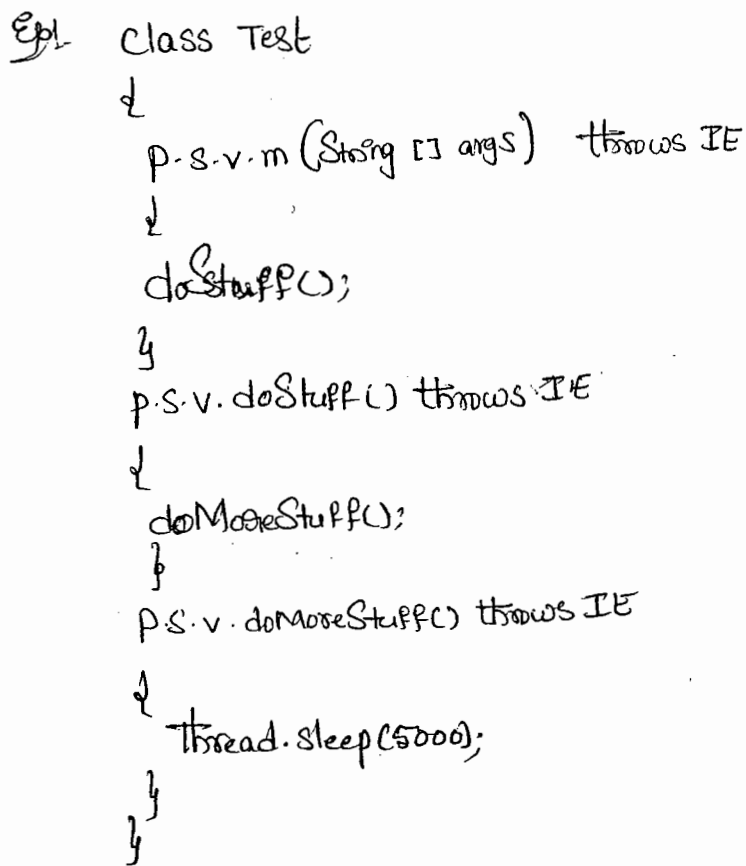 Ex:- Class Test
{
p.s.v.m (String [] args) throws IE
{
doStuff();
}
p.s.v. doStuff() throws IE
{
doMoreStuff();
}
p.s.v. doMoreStuff() throws IE
{
thread.sleep(5000);
}
}